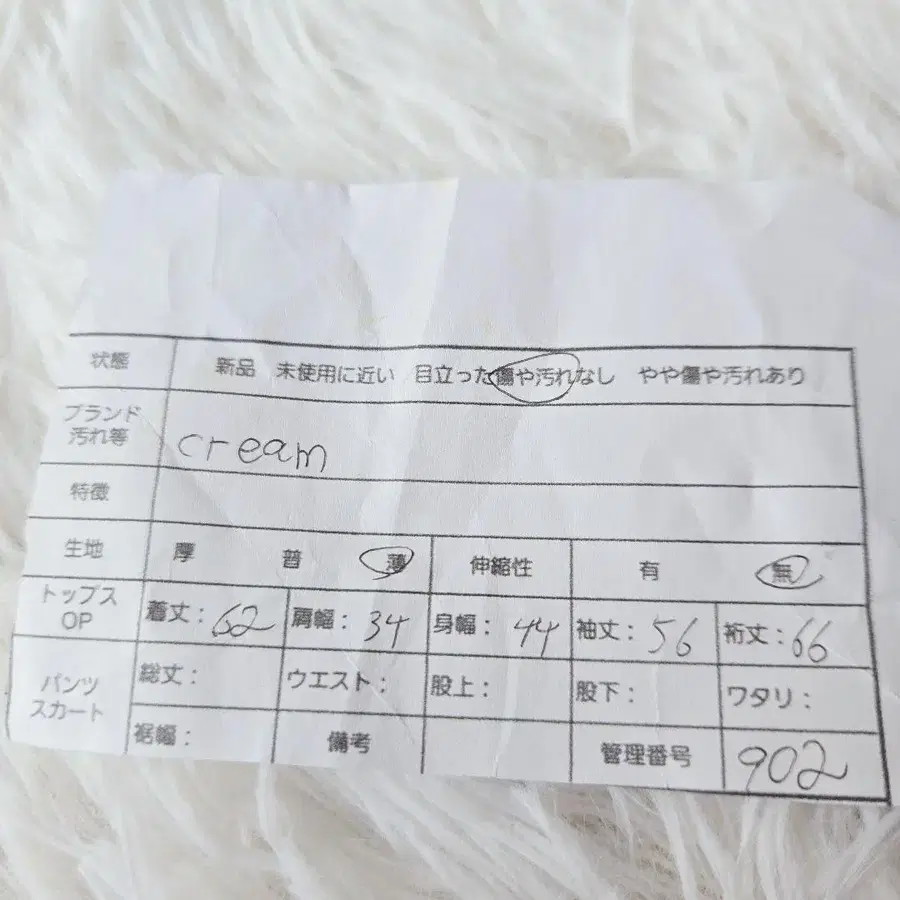 状態 新品 未使用に近い 目立った傷や汚れなし やや傷や汚れあり
ブランド
汚れ等 cream
特徴
生地 厚 普 薄 伸縮性 有 無
トップス
OP 着丈：62 肩幅：34 身幅：44 袖丈：56 裄丈：66
パンツ
スカート 総丈： ウエスト： 股上： 股下： ワタリ：
裾幅： 備考 管理番号 902